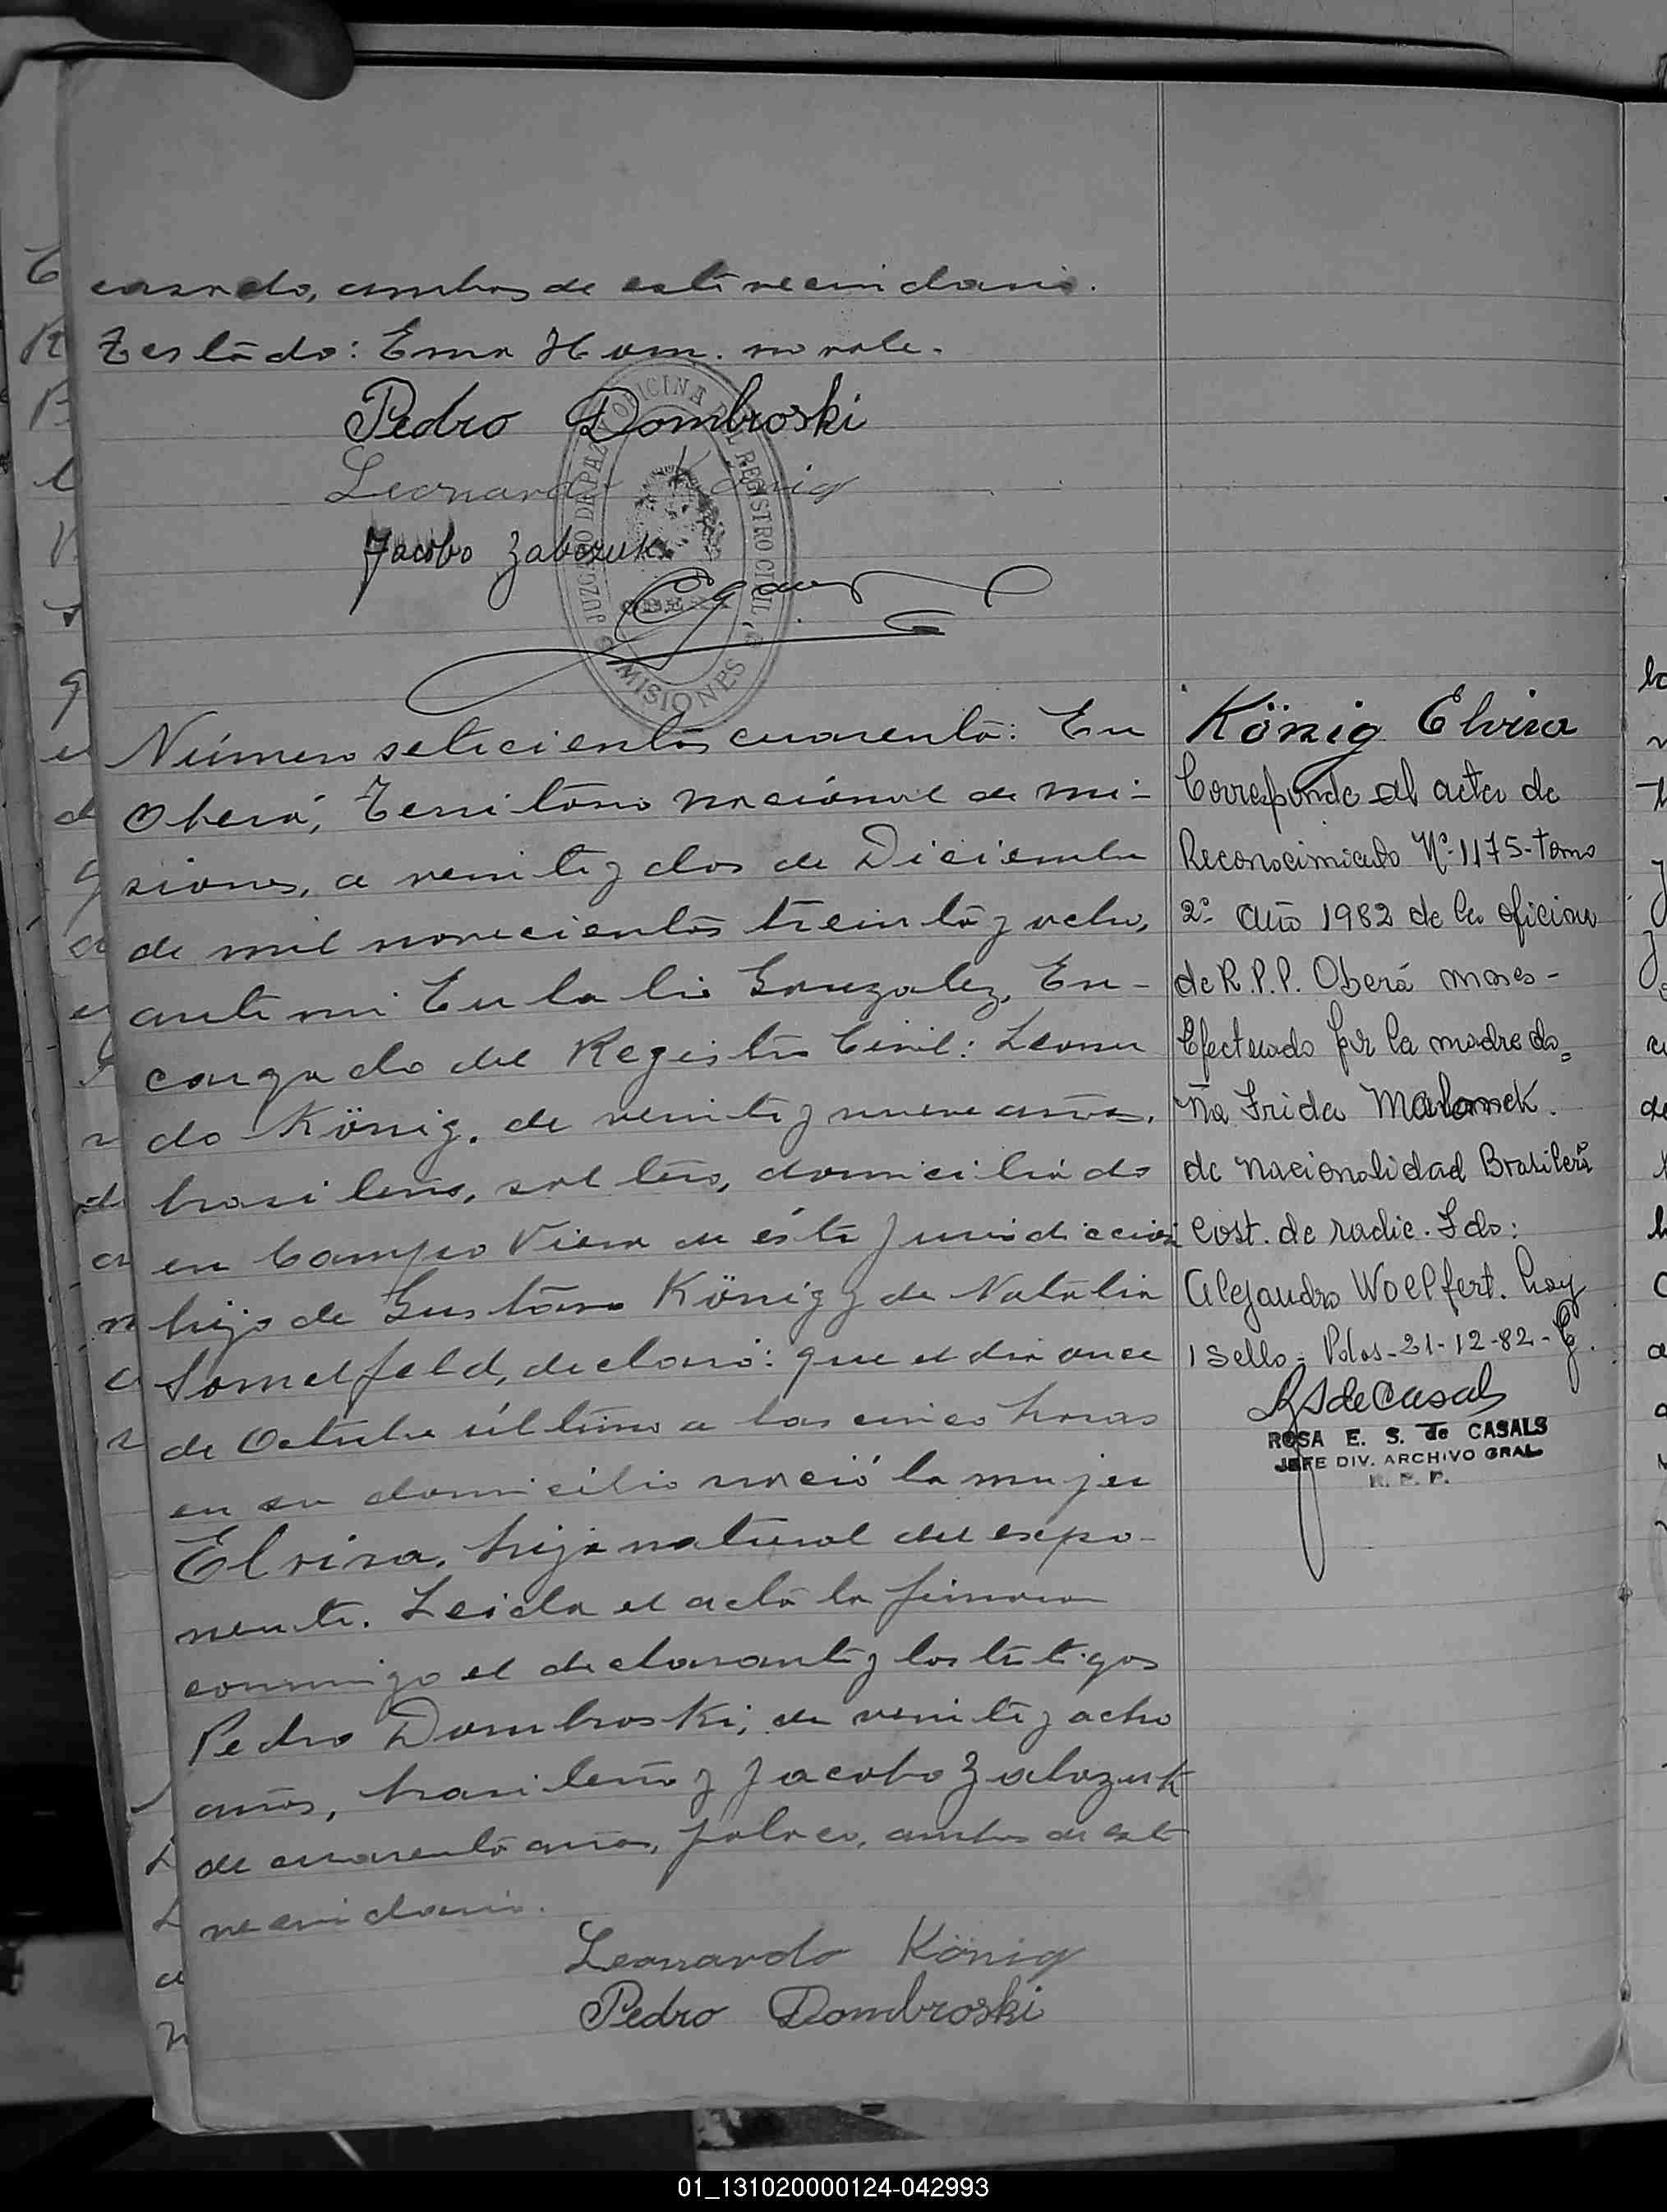 casado, ambos de este vecindario.
Testado: Ema Hom. no vale.
Pedro Dombroski
Leonardo König
Jacobo Zabczuk
JUZGADO DE PAZ OFICINA DEL REGISTRO CIVIL
OBERA
MISIONES
Número setecientos cuarenta: En
Oberá, Territorio Nacional de Mi-
siones, a veinte y dos de Diciembre
de mil novecientos treinta y ocho,
ante mi Eulalio Gonzalez, En-
cargado del Registro Civil: Leonar
do König, de veinte y nueve años,
brasileño, soltero, domiciliado
en Campo Viera de ésta jurisdicción
hijo de Gustavo König y de Natalia
Somelfeld, declaró: que el dia once
de Octubre último a las cinco horas
en su domicilio nació la mujer
Elvira, hija natural del expo-
nente. Leida el acta la firman
conmigo el declarante y los testigos
Pedro Dombroski, de veinte y ocho
años, brasileño y Jacobo Zabozuk
de cuarenta años, polaco, ambos de este
vecindario.
Leonardo König
Pedro Dombroski
König Elvira
Corresponde al acta de
Reconocimiento Nº 1175-tomo
2º año 1982 de la oficina
de R.P.P. Oberá mnes-
Efectuado por la madre do=
ña Frida Malonek.
de nacionalidad Brasilera
Cost. de radic. Fdo:
Alejandro Woelfert. hay
1 sello = Pdos-21-12-82-
RSdeCasals
ROSA E. S. de CASALS
JEFE DIV. ARCHIVO GRAL
R. P. P.
01_131020000124-042993